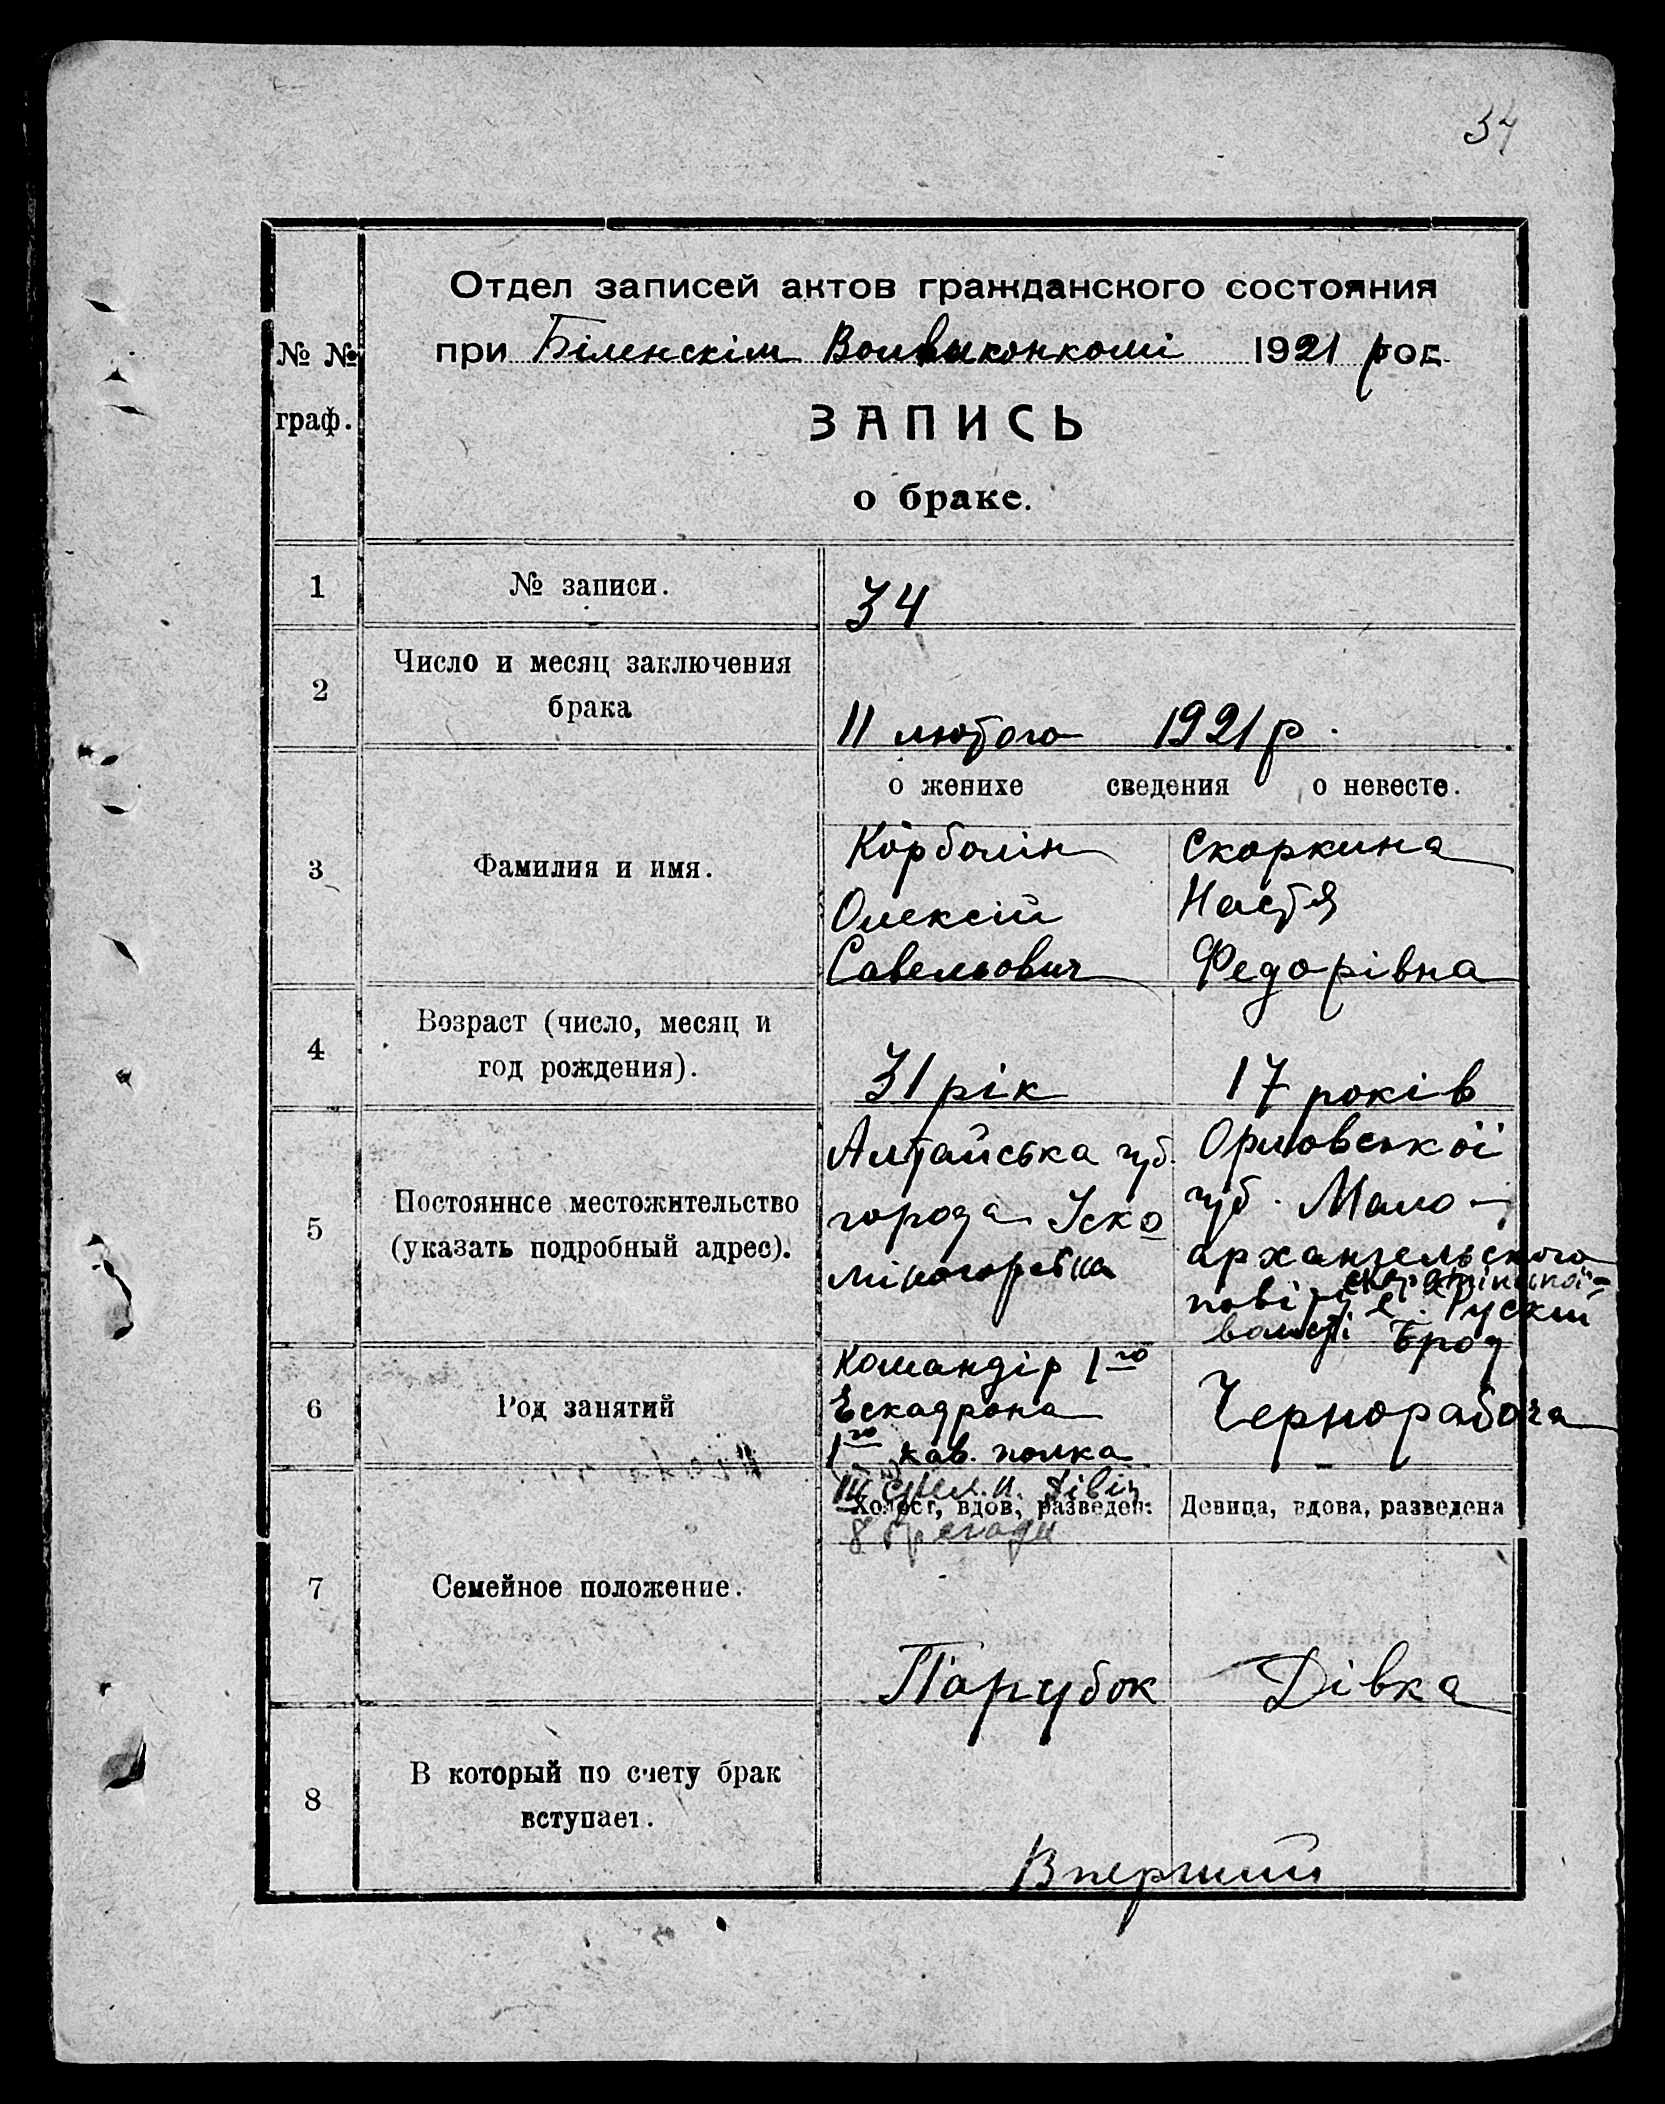 34
Отдел записей актов гражданского состояния
при Біленскім Волвыконкомі 1921 год
№ №
граф.
ЗАПИСЬ
о браке.
1 № записи. 34
2 Число и месяц заключения
брака
11 лютого 1921 р.
о женихе сведения о невесте.
3 Фамилия и имя.
Корболін
Олексій
Савельович
Скоркина
Настя
Федорівна
4 Возраст (число, месяц и
год рождения).
31 рік
17 років
5 Постоянное местожительство
(указать подробный адрес).
Алтайська губ.
города
Орловської
губ. Мало-
архангельського
повіту
волості с. Рускій
Брод
6 Род занятий
Командір 1го
Ескадрона
1го кав. полка
III Дівіз
8 бригади
Чернорабоча
7 Семейное положение.
Холост, вдов, разведен: Девица, вдова, разведена
Парубок Дівка
8 В который по счету брак
вступает.
Вперший